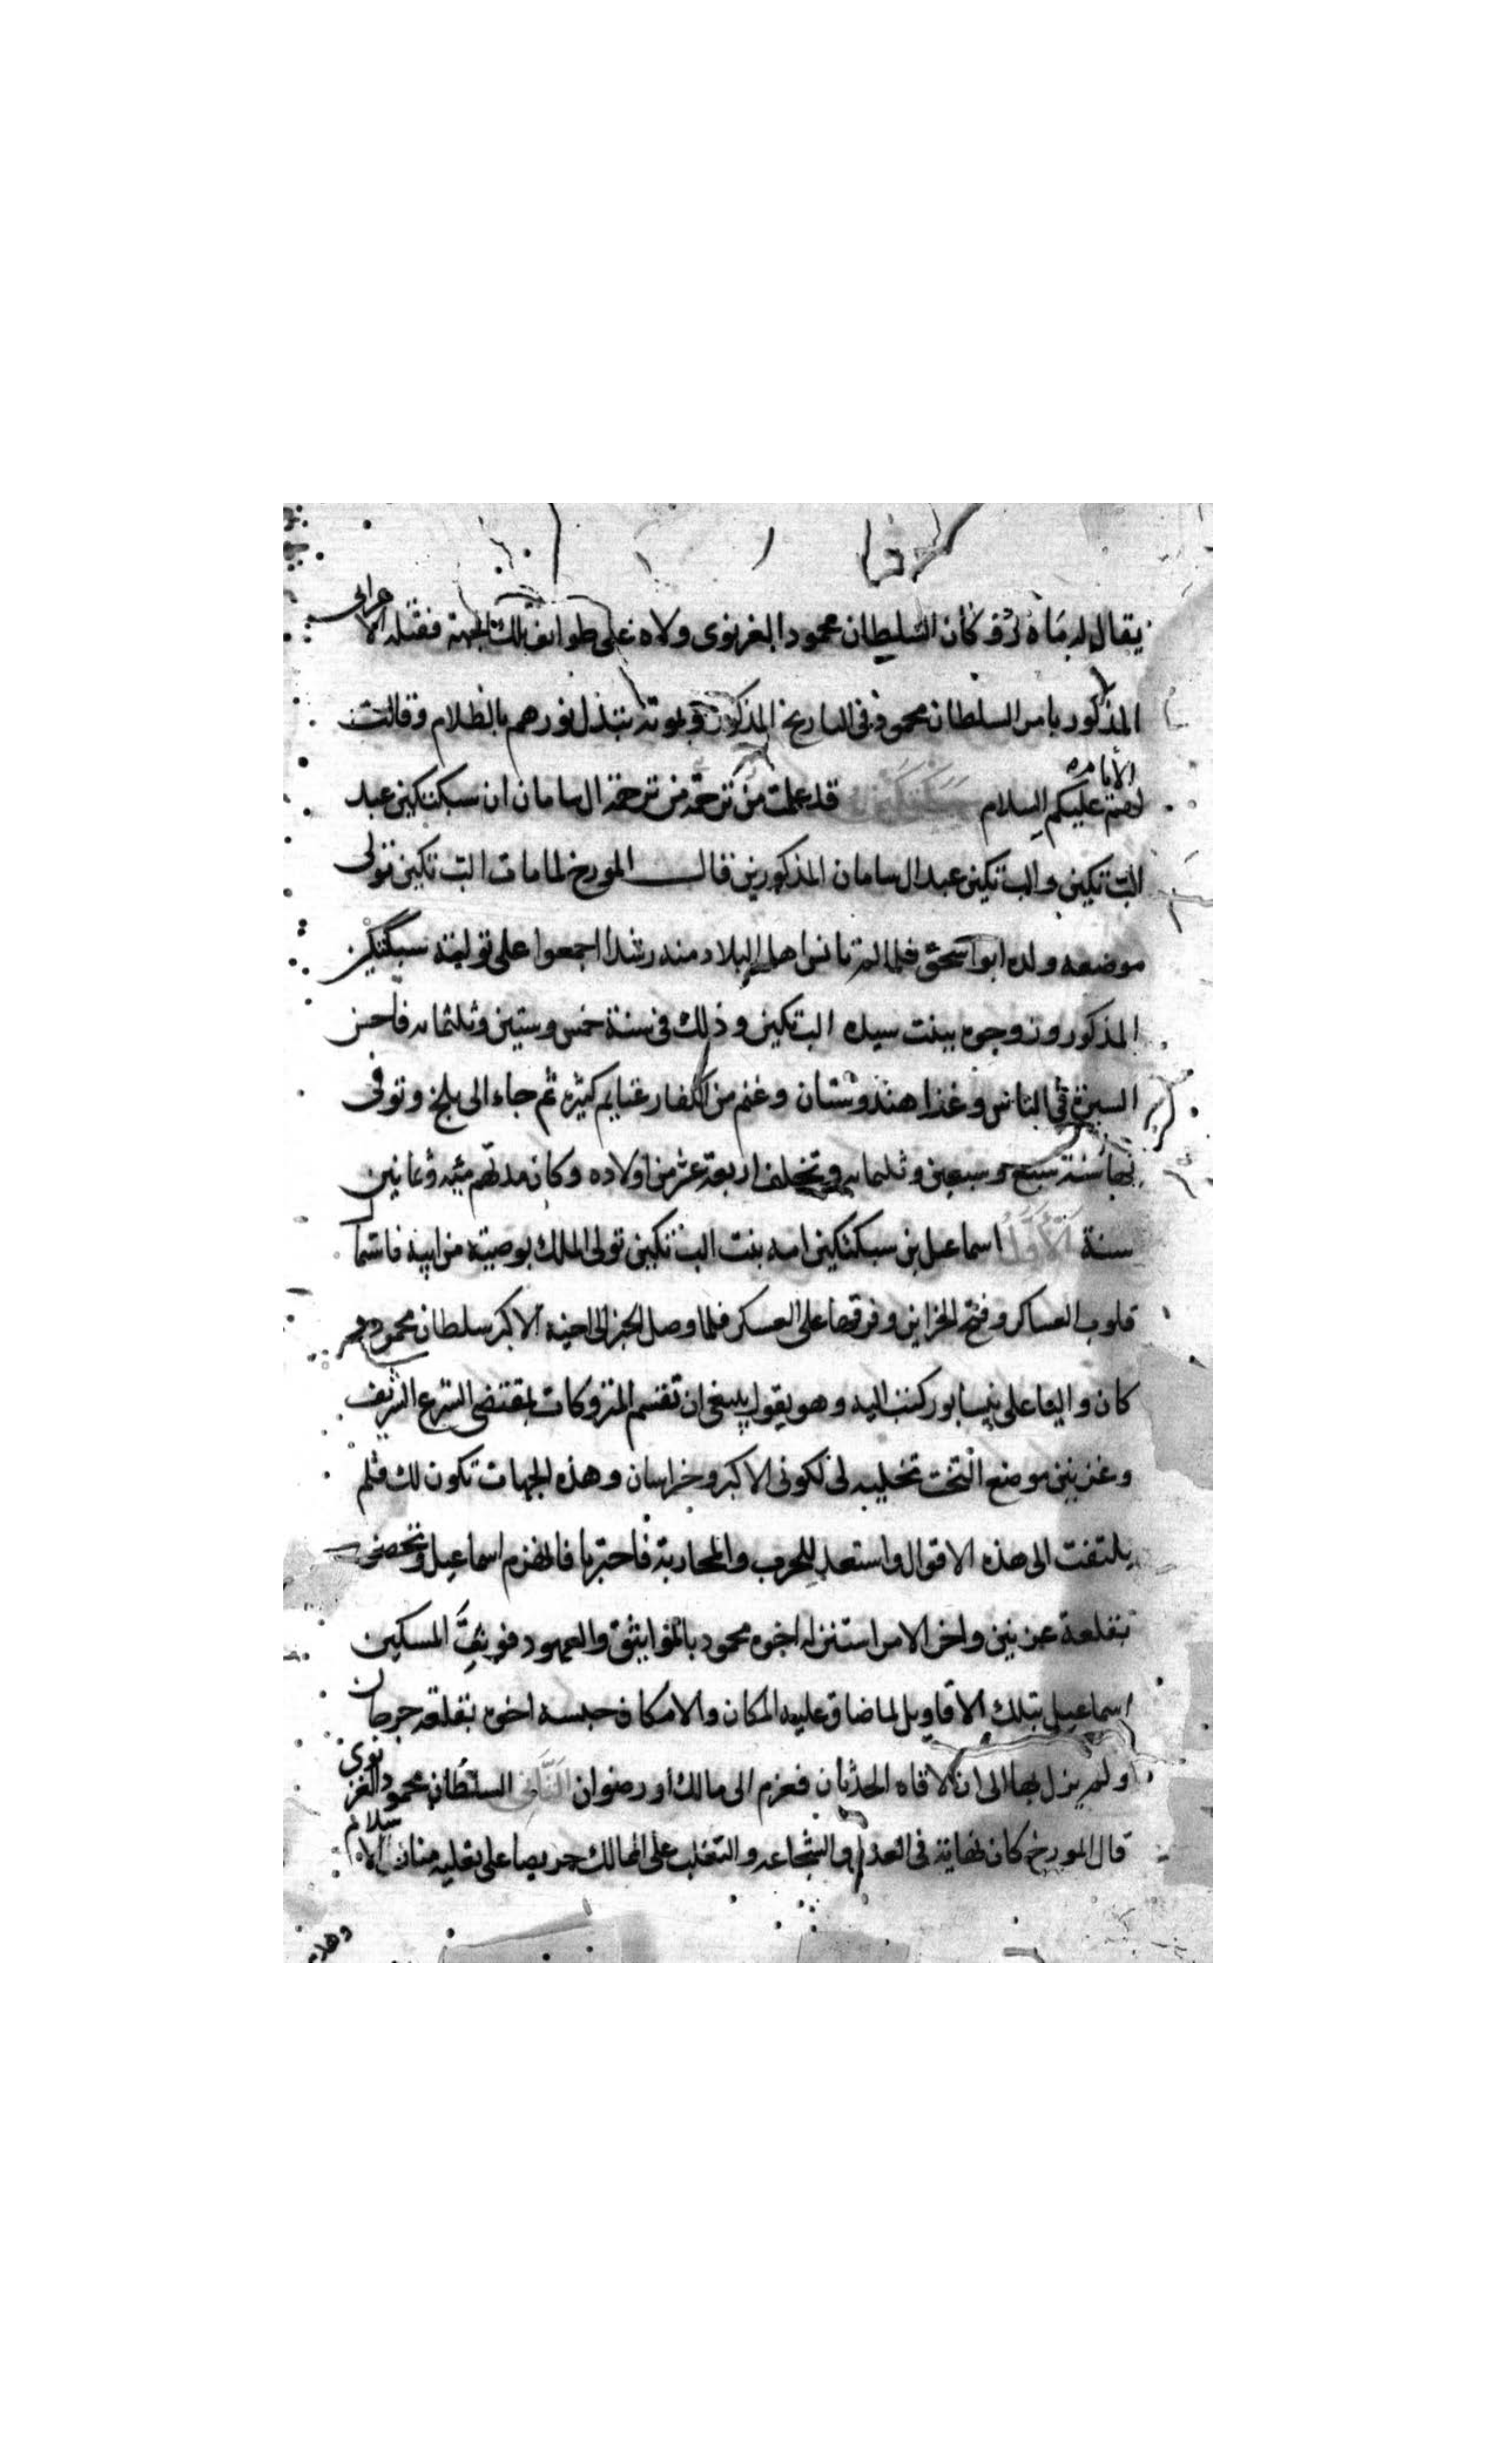 يقال له ماه رو كان السلطان محمود الغزنوى ولاه على طوايف تلك الجهة فقتله الاعرابى
المذكور بامر السلطان محمود فى التاريخ المذكور وبموته تبذل نورهم بالظلام وقالت
الامامة عليكم السلام سبكتكين قد علمت من ترجمة من ترجمة ال سامان ان سبكتكين عبد
البتتكين والبتتكين عبد ال سامان المذكورين قال المورخ لما مات البتتكين تولى
موضعه ولده ابو اسحق فلما لم تانس اهل البلاد منه رشدا اجمعوا على توليته سبكتكين
المذكور وزوجوه ببنت سيده البتكين وذلك فى سنة خمس وستين وثلثمايه فاحسن
السيرة فى الناس وغذا هندوستان وغنم من الكفار غنايم كثيرة ثم جاء الى بلخ وتوفى
بها سنة سبع وسبعين وثلثمايه وتخلف اربعة عشر من اولاده وكان مدتهم مئه وثمانين
سنة الاول اسماعيل بن سبكتكين امه بنت البتتكين تولى الملك بوصية من ابيه فاستما
قلوب العساكر وفتح الخزاين وفرقها على العسكر فلما وصل الخبر الى اخيه الاكبر سلطان محمود
كان واليا على نيسابور كتب اليه وهو يقول ينبغى ان تقسم المتروكات بمقتضى الشرع الشريف
وغزنين موضع التخت تخليه لى لكونى الاكبر وخراسان وهذه الجهات تكون لك فلم
يلتفت الى هذه الاقوال واستعد للحرب والمحاربة فاحتربا فانهزم اسماعيل وتحصن
بقلعة غزنين واخر الامر استنزله اخوه محمود بالمواثيق والعهود فوثق المسكين
اسماعيل بتلك الاقاويل لما ضاق عليه المكان والامكان حبسه اخوه بقلعة جرجان
ولم يزل بها الى ان لاقاه الحدثان فعزم الى مالك او رضوان الثانى السلطان محمود الغزنوى
قال المورخ كان نهاية فى العدل والشجاعه والتغلب على الممالك حريصا على الاسلام